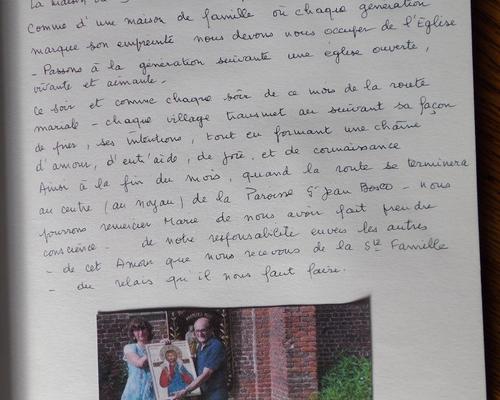 La maison
Comme d'une maison de famille où chaque génération
marque son empreinte nous devons nous occuper de l'Église
- Passons à la génération suivante une église ouverte,
vivante et aimante.
Ce soir et comme chaque soir de ce mois de la route
mariale - chaque village transmet au suivant sa façon
de prier, ses intentions, tout en formant une chaîne
d'amour, d'entr'aide, de joie, et de connaissance
Ainsi à la fin du mois, quand la route se terminera
au centre (au noyau) de la Paroisse St Jean Bosco - nous
pourrons remercier Marie de nous avoir fait prendre
conscience - de notre responsabilité envers les autres
- de cet Amour que nous recevons de la Ste Famille
- du relais qu'il nous faut faire.